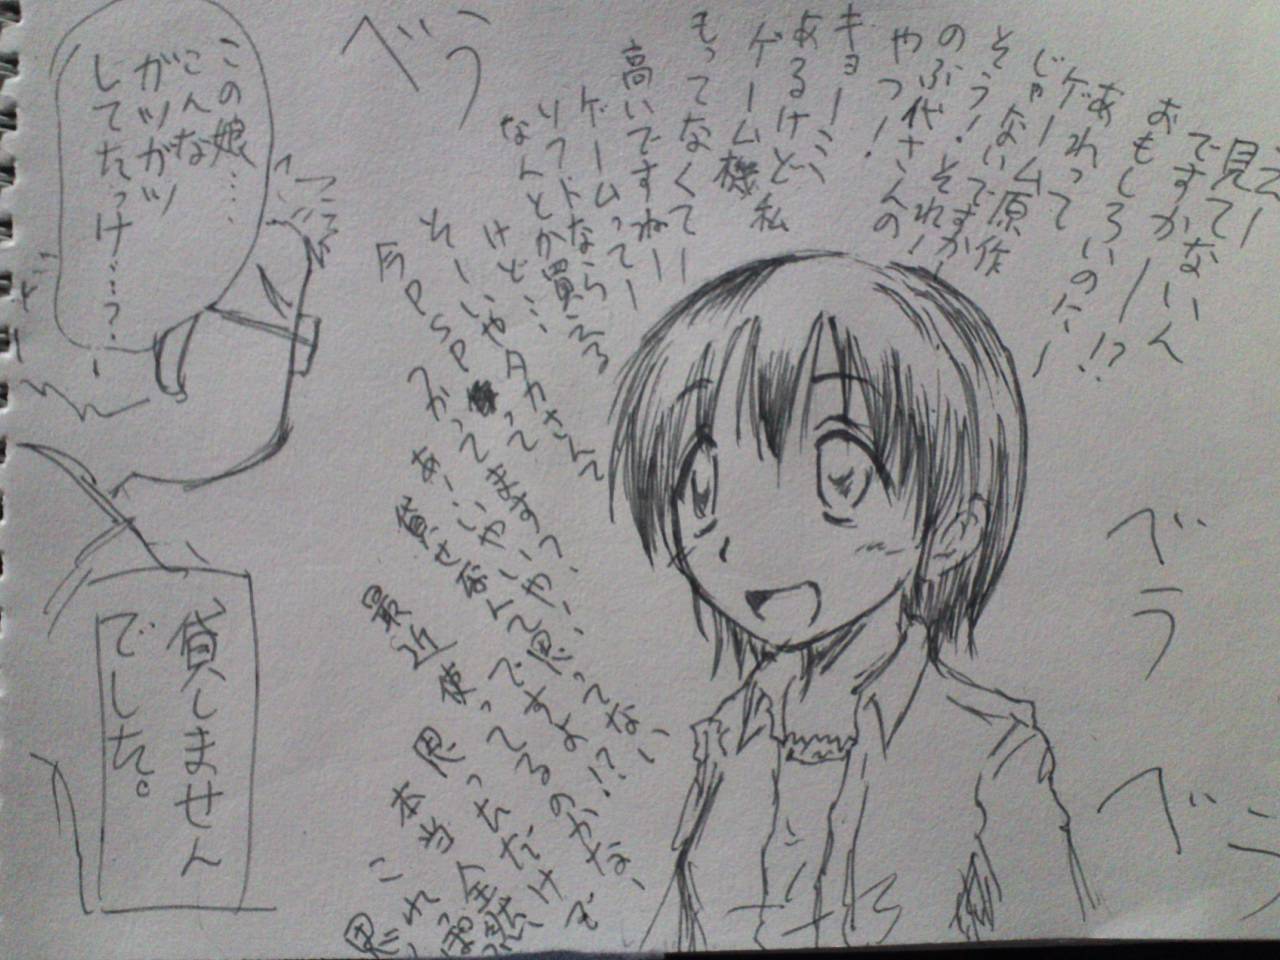 えー
見てないん
ですかー!?
おもしろいのにー
あれって
ゲーム原作
じゃないですかー
そう!それ!
のぶ代さんの
やつ!
キョーミ
あるけど私
ゲーム機
もってなくてー
高いですねー
ゲームってー
ソフトなら
なんとか買える
けど…
そーいやタカさんって
今PSP
つかってますっ?
あ、いやいや、
貸せなんて思ってない
ですよ!?
最近使ってるのかな、で
思っただけ
本当
全然
これっぽ
思
ベラ
ベラ
ベラ
この娘……
こんな
ガツガツ
してたっけ…?
貸しません
でした。